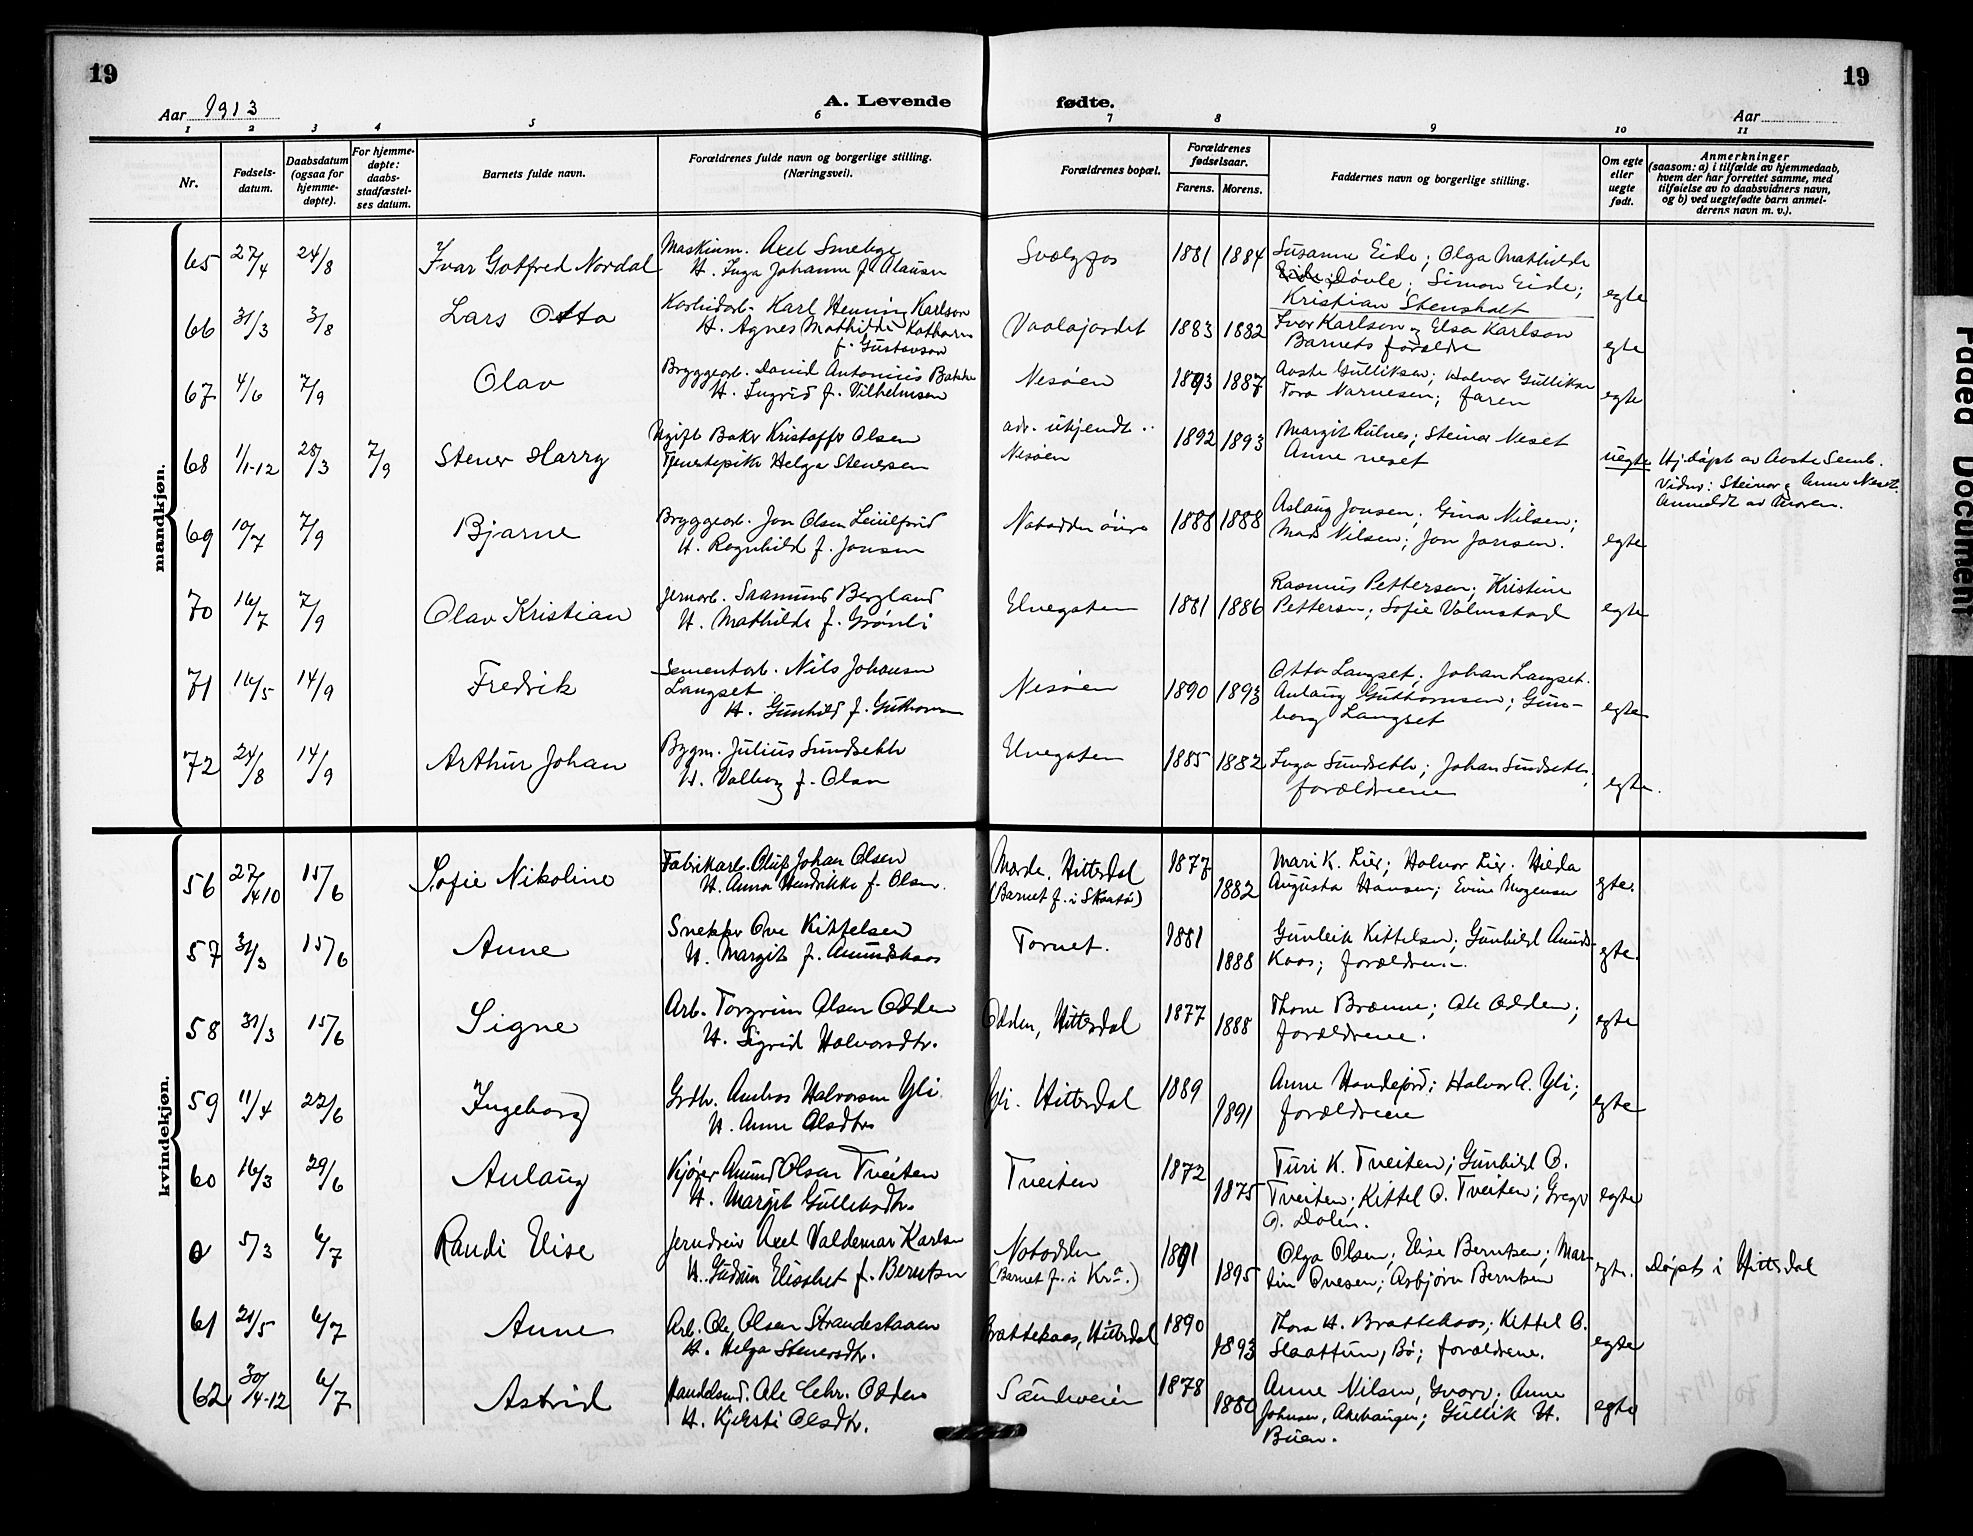 19
19
Aar 1913
A. Levende fødte.
Aar
1 2 3 4 5 6 7 8 9 10 11
Nr.
Fødsels-
datum.
Daabsdatum
(ogsaa for
hjemme-
døpte).
For hjemme-
døpte:
daabs-
stadfæstel-
ses datum.
Barnets fulde navn.
Forældrenes fulde navn og borgerlige stilling.
(Næringsvei).
Forældrenes bopæl.
Forældrenes
fødselsaar.
Farens. Morens.
Faddernes navn og borgerlige stilling.
Om egte
eller
uegte
født.
Anmerkninger
(saasom: a) i tilfælde av hjemmedaab,
hvem der har forrettet samme, med
tilføielse av to daabsvidners navn,
og b) ved uegtefødte barn anmel-
derens navn m. v.).
mandkjøn.
65 27/4 24/8 Ivar Gotfred Nordal
Maskinm. Axel
H. Inga Johanne f. Clausen
Svælgfos 1881 1884
Susanne Eide; Olga Mathilde
Døvle; Simon Eide;
Kristian Stensholt
egte
66 31/3 3/8 Lars Otto
Karl Henning Karlson
H. Agnes Mathilde
f. Gustavson
1883 1882
Iver Karlson og Elsa Karlson
Barnets forældre
egte
67 4/6 7/9 Olav
Bryggearb. David Antonius
H. Ingrid f. Vilhelmsen
Nesøen 1893 1887
Aaste Gulliksen; Halvor Gulliksen
Tora faren
egte
68 1/1-12 25/3 7/9 Stener Harry
Ugift Baker Kristoffer Olsen
Tjenestepike Helga Stenersen
adr. ukjendt
Nesøen
1892 1893
Margit Steinar Neset
Anne Neset
uegte
Hj.døpt av Aaste Semb.
Vidner: Steinar og Anne Neset.
Anmeldt av moren.
69 10/7 7/9 Bjarne
Bryggearb. Jon Olsen
H. Ragnhild f. Jonsen
Notodden øvre 1888 1888
Aslaug Jonsen; Gina Nilsen;
Mads Nilsen; Jon Jansen.
egte
70 16/7 7/9 Olav Kristian
Jernarb. Saamund Bergland
H. Mathilde f. Grønli
Elvegaten 1881 1886
Rasmus Pettersen; Kristine
Pettersen; Sofie Valmstad
egte
71 16/5 14/9 Fredrik
Sementarb. Nils Johansen
Langset.
H. Gunhild f. Guthormsen
Nesøen 1890 1893
Otto Langset; Johan Langset.
Aulaug Guthormsen; Gun-
borg Langset
egte
72 24/8 14/9 Arthur Johan
Bygm. Julius Sundseth
H. Valborg f. Olsen
Elvegaten 1885 1882
Inga Sundseth; Johan Sundseth;
forældrene
egte.
kvindekjøn.
56 27/4 10 15/6 Sofie Nikoline
Fabrikarb. Oluf Johan Olsen
H. Anna Hendrikke f. Olsen.
Hitterdal
(Barnet f. i Skaatø)
1877 1882
Mari K. Lier; Halvor Lier. Hilda
Augusta Hansen; Even Mogensen
egte.
57 31/3 15/6 Anne
Snekker Ove Kittelsen
H. Margit f. Amundskaas
Tornet. 1881 1888
Gunleik Kittelsen; Gunhild Amunds-
kaas; forældrene.
egte.
58 31/3 15/6 Signe
Arb. Torgrim Olsen Odden
H. Sigrid Halvorsdtr.
Odden, Hitterdal 1877 1888
Thone Brænne; Ole Odden;
forældrene.
egte
59 11/4 22/6 Ingeborg
Grdbr. Andreas Halvorsen Yli
H. Anne Olsdtr.
Yli. Hitterdal 1889 1891
Anne Halvor A. Yli;
forældrene
egte
60 16/3 29/6 Aulaug
Kjører Amund Olsen Tveiten
H. Margit Gulliksdtr.
Tveiten 1872 1875
Turi K. Tveiten; Gunhild O.
Tveiten; Kittel O. Tveiten; Gregar
O. Dalen.
egte
0 5/3 6/7 Randi Elise
Jerndreier Axel Valdemar Karlsen
H. Gudrun Elisabet f. Berntsen
Notodden
(Barnet f. i Kra.)
1891 1895
Olga Olsen; Elise Berntsen; Mar-
tin Ovesen; Asbjørn Berntsen
egte.
Døpt i Hitterdal
61 21/5 6/7 Anne
Arb. Ole Olsen
H. Helga Stenersdtr.
Brattekaas, Hitterdal 1890 1893
Thora H. Brattekaas; Kittel O.
Slaattun, Bø; forældrene.
egte
62 30/4-12 6/7 Astrid
Handelsmd. Ole Chr. Odden
H. Kjersti Olsdtr.
Sandveien 1878 1880
Anne Nilsen, Anne
Johnsen, Gullik H.
Buen.
egte
Faded Document